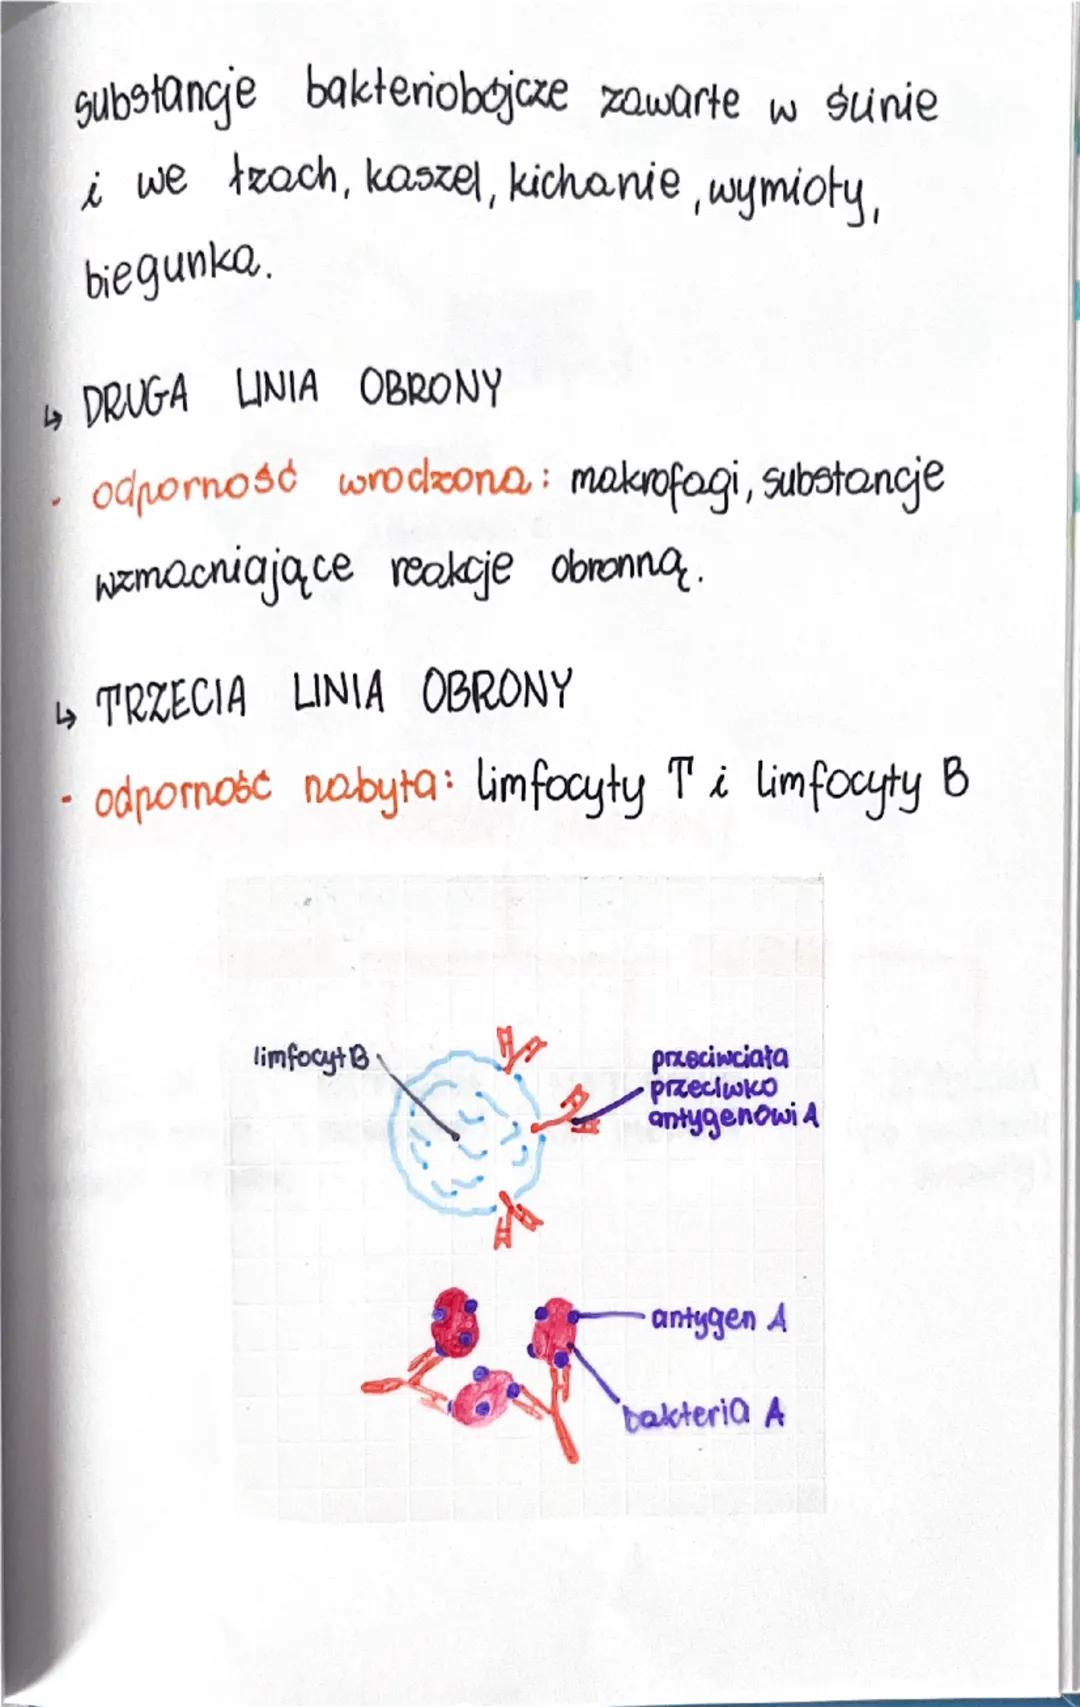 substancje bakteriobójcze zawarte w ślinie
i we łzach, kaszel, kichanie, wymioty,
biegunka.
↳ DRUGA LINIA OBRONY
- odporność wrodzona: makrofagi, substancje
wzmacniające reakcje obronną.
↳ TRZECIA LINIA OBRONY
- odporność nabyta: limfocyty T i limfocyty B
limfocyt B
przeciwciała
przeciwko
antygenowi A
antygen A
bakteria A